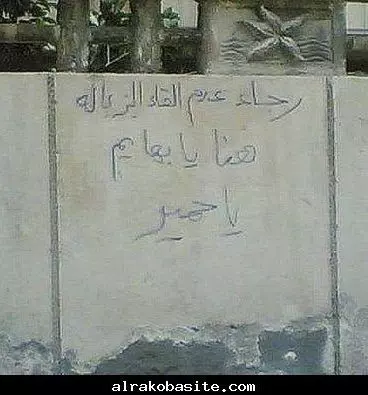 رجاء عدم القاء الزباله
هنا يا بهايم
يا حمير
alrakobasite.com